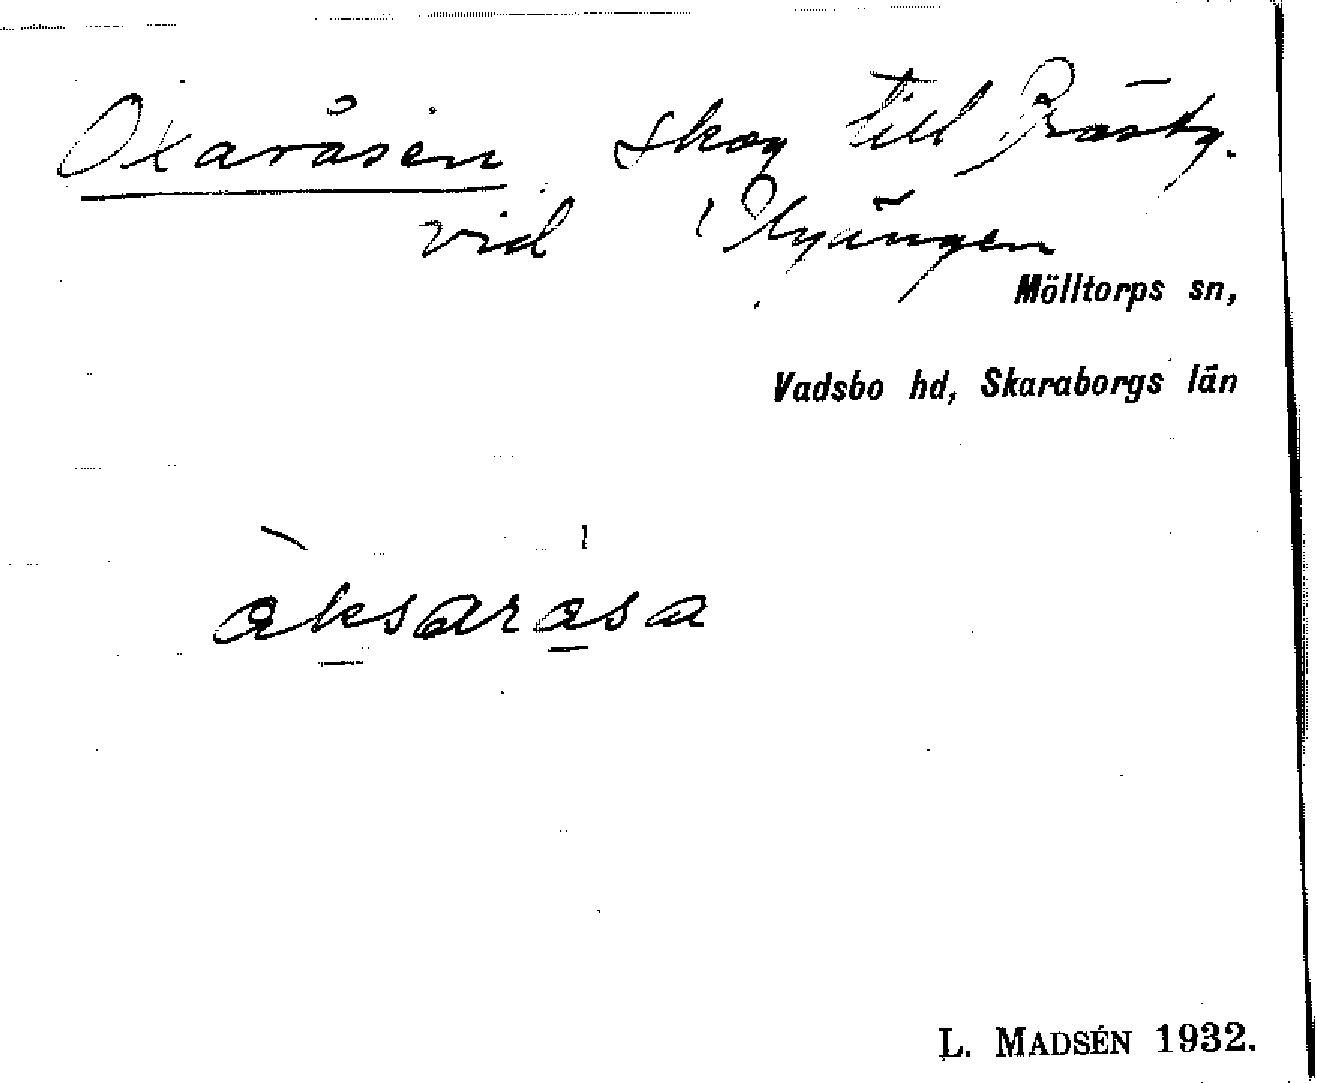 Oxaråsen skog till Prästg.
vid Nyängen
Mölltorps sn,
Vadsbo hd, Skaraborgs län
àksaråsa
L. MADSÉN 1932.